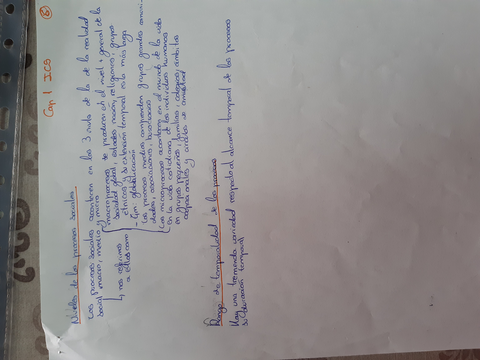 Cap 1 ICS
Niveles de los procesos sociales
Los procesos sociales ocurren en los 3 niveles de la de la realidad
social macro, medio y micro
macroprocesos se producen en el nivel + general de la
sociedad global, estados nación, religiones, grupos
étnicos y su extensión temporal es la más larga
- Ejm. globalización
↳ nos referimos
a ellos como
Los procesos medios comprenden grupos grandes comuni-
dades, asociaciones,
Los microprocesos acontecen en el mundo de la vida
en la vida cotidiana, de los individuos humanos
en grupos pequeños, familias, colegios, ámbitos
y círculos de amistad
Rango de temporalidad de los procesos
Hay una tremenda variedad respecto al alcance temporal de los procesos
su duración temporal